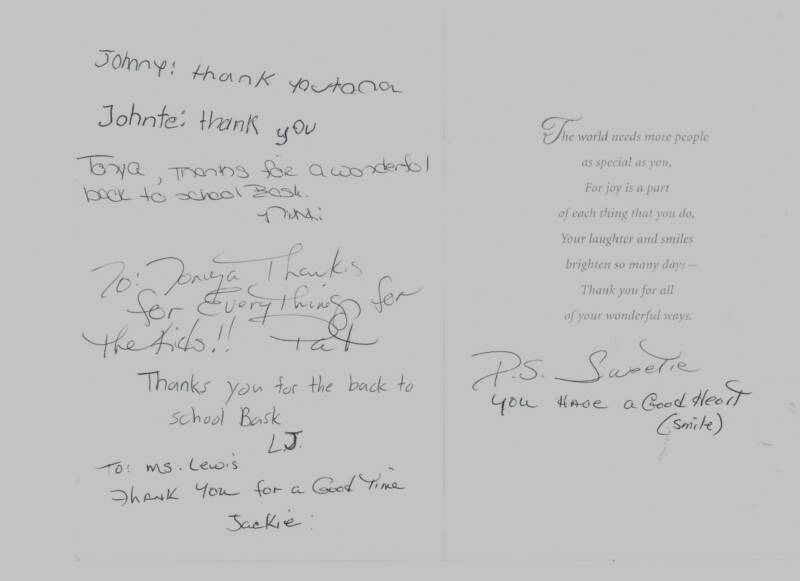 Johny: thank you tana
Johnte: thank you
Tonya, Thanks for a wonderful
back to school Bask.
Nikki
To: Tonya Thanks
for Everything for
the kids!! Tat
Thanks you for the back to
school Bask
LJ.
To: Ms. Lewis
Thank you for a Good Time
Jackie:
The world needs more people
as special as you,
For joy is a part
of each thing that you do,
Your laughter and smiles
brighten so many days—
Thank you for all
of your wonderful ways.
P.S. Sweetie
You Have a Good Heart
(smile)